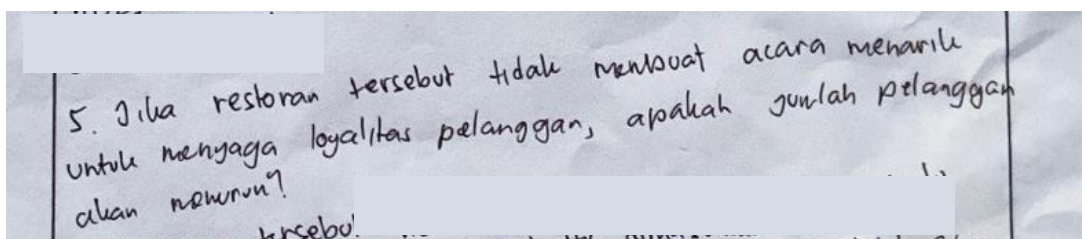 5. Jika restoran tersebut tidak membuat acara menarik
untuk menjaga loyalitas pelanggan, apakah jumlah pelanggan
akan menurun?
tersebut